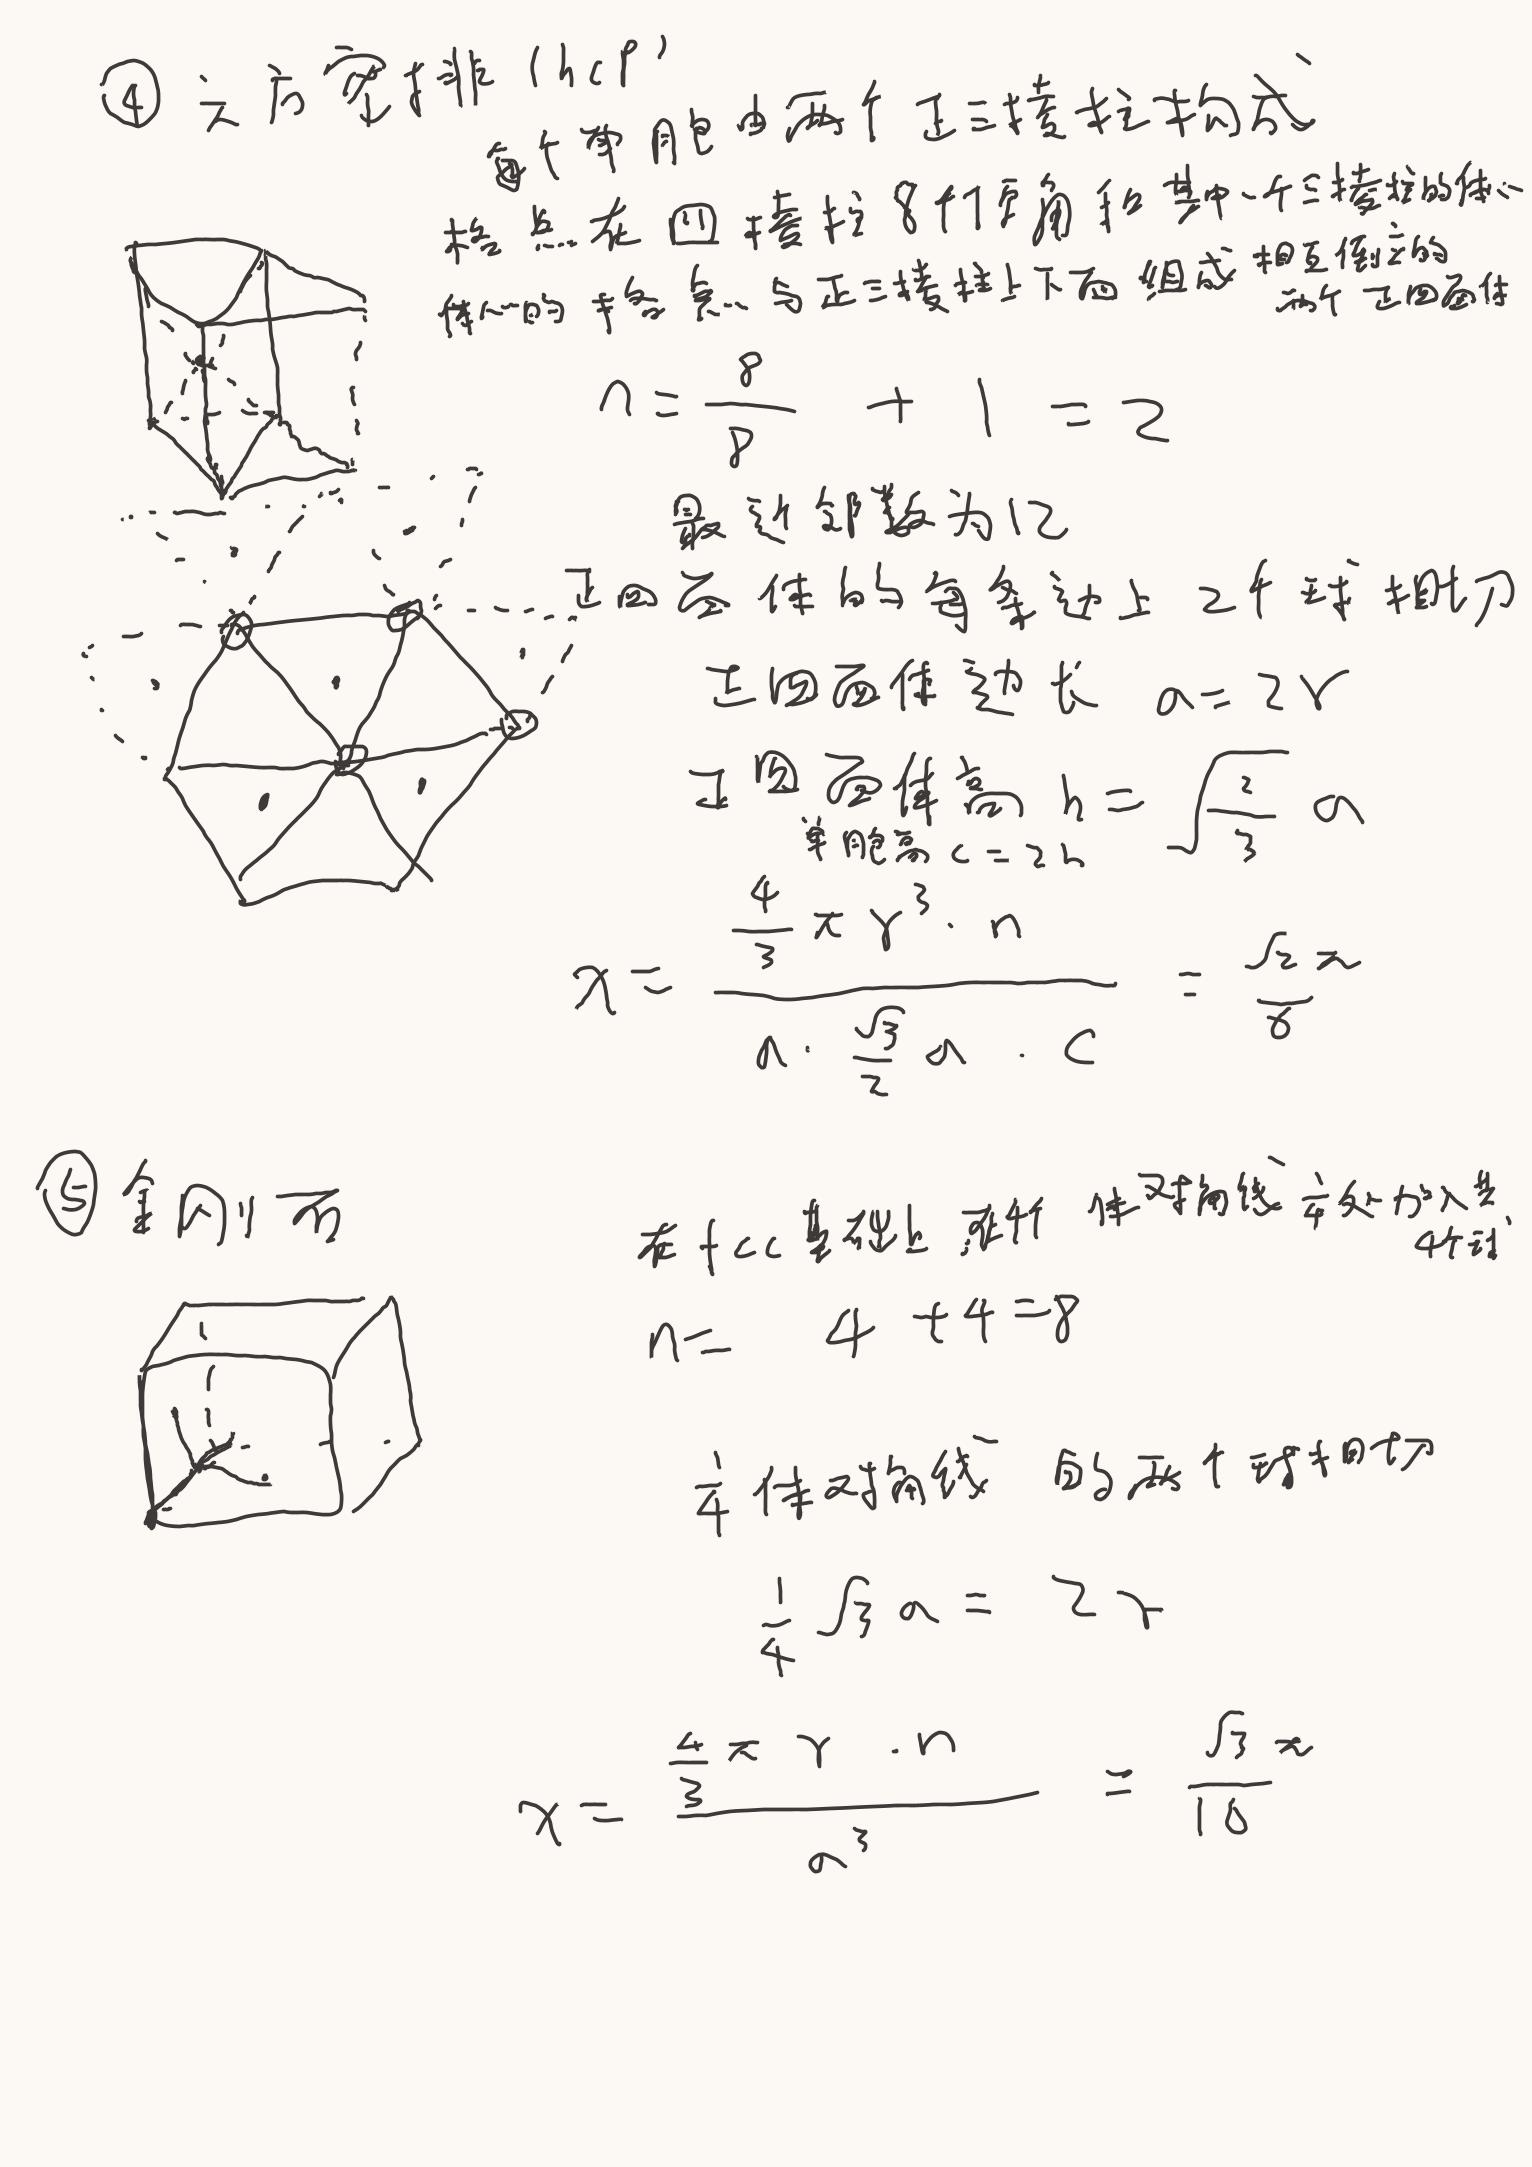 ④ 六方密排 (hcp)
每个单胞由两个正三棱柱构成
格点在四棱柱8个顶角和其中一个三棱柱的体心
体心的格点与正三棱柱上下面组成相互倒立的
两个正四面体
n = 8/8 + 1 = 2
最近邻数为12
正四面体的每条边上2个球相切
正四面体边长 a = 2r
正四面体高 h = √(2/3) a
单胞高 c = 2h
x = (4/3 π r³ · n) / (a · √3/2 a · c) = √2 π / 6
⑤ 金刚石
在fcc基础上在4个体对角线 1/4 处加入共
4个球
n = 4 + 4 = 8
1/4 体对角线的两个球相切
1/4 √3 a = 2r
x = (4/3 π r · n) / a³ = √3 π / 16